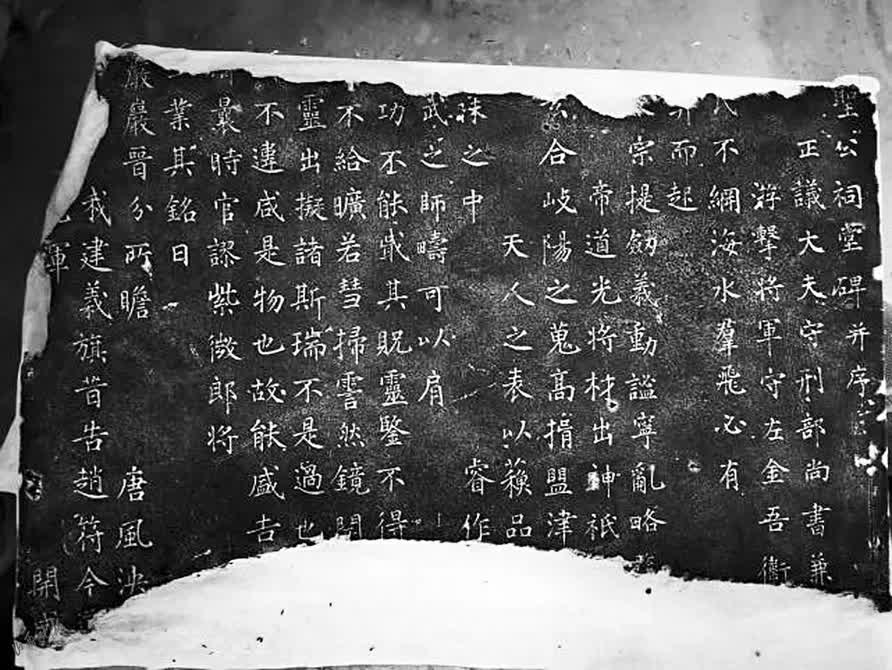 聖公祠堂碑并序
正議大夫守刑部尚書兼
游擊將軍守左金吾衛
不綱海水羣飛必有
而起
宗提劔義動謐寧亂略
帝道光將材出神祇
合岐陽之蒐高揖盟津
天人之表以蘓品
之中 睿作
武之師疇可以肩
功不能戢其貺靈鑒不得
不給曠若彗掃雲然鏡開
靈出擬諸斯瑞不是過也
不違咸是物也故能盛吉
最時官謬紫微郎將
業其銘曰
巖巖晉分所瞻 唐風泱
我建義旗昔告趙符今
運 開